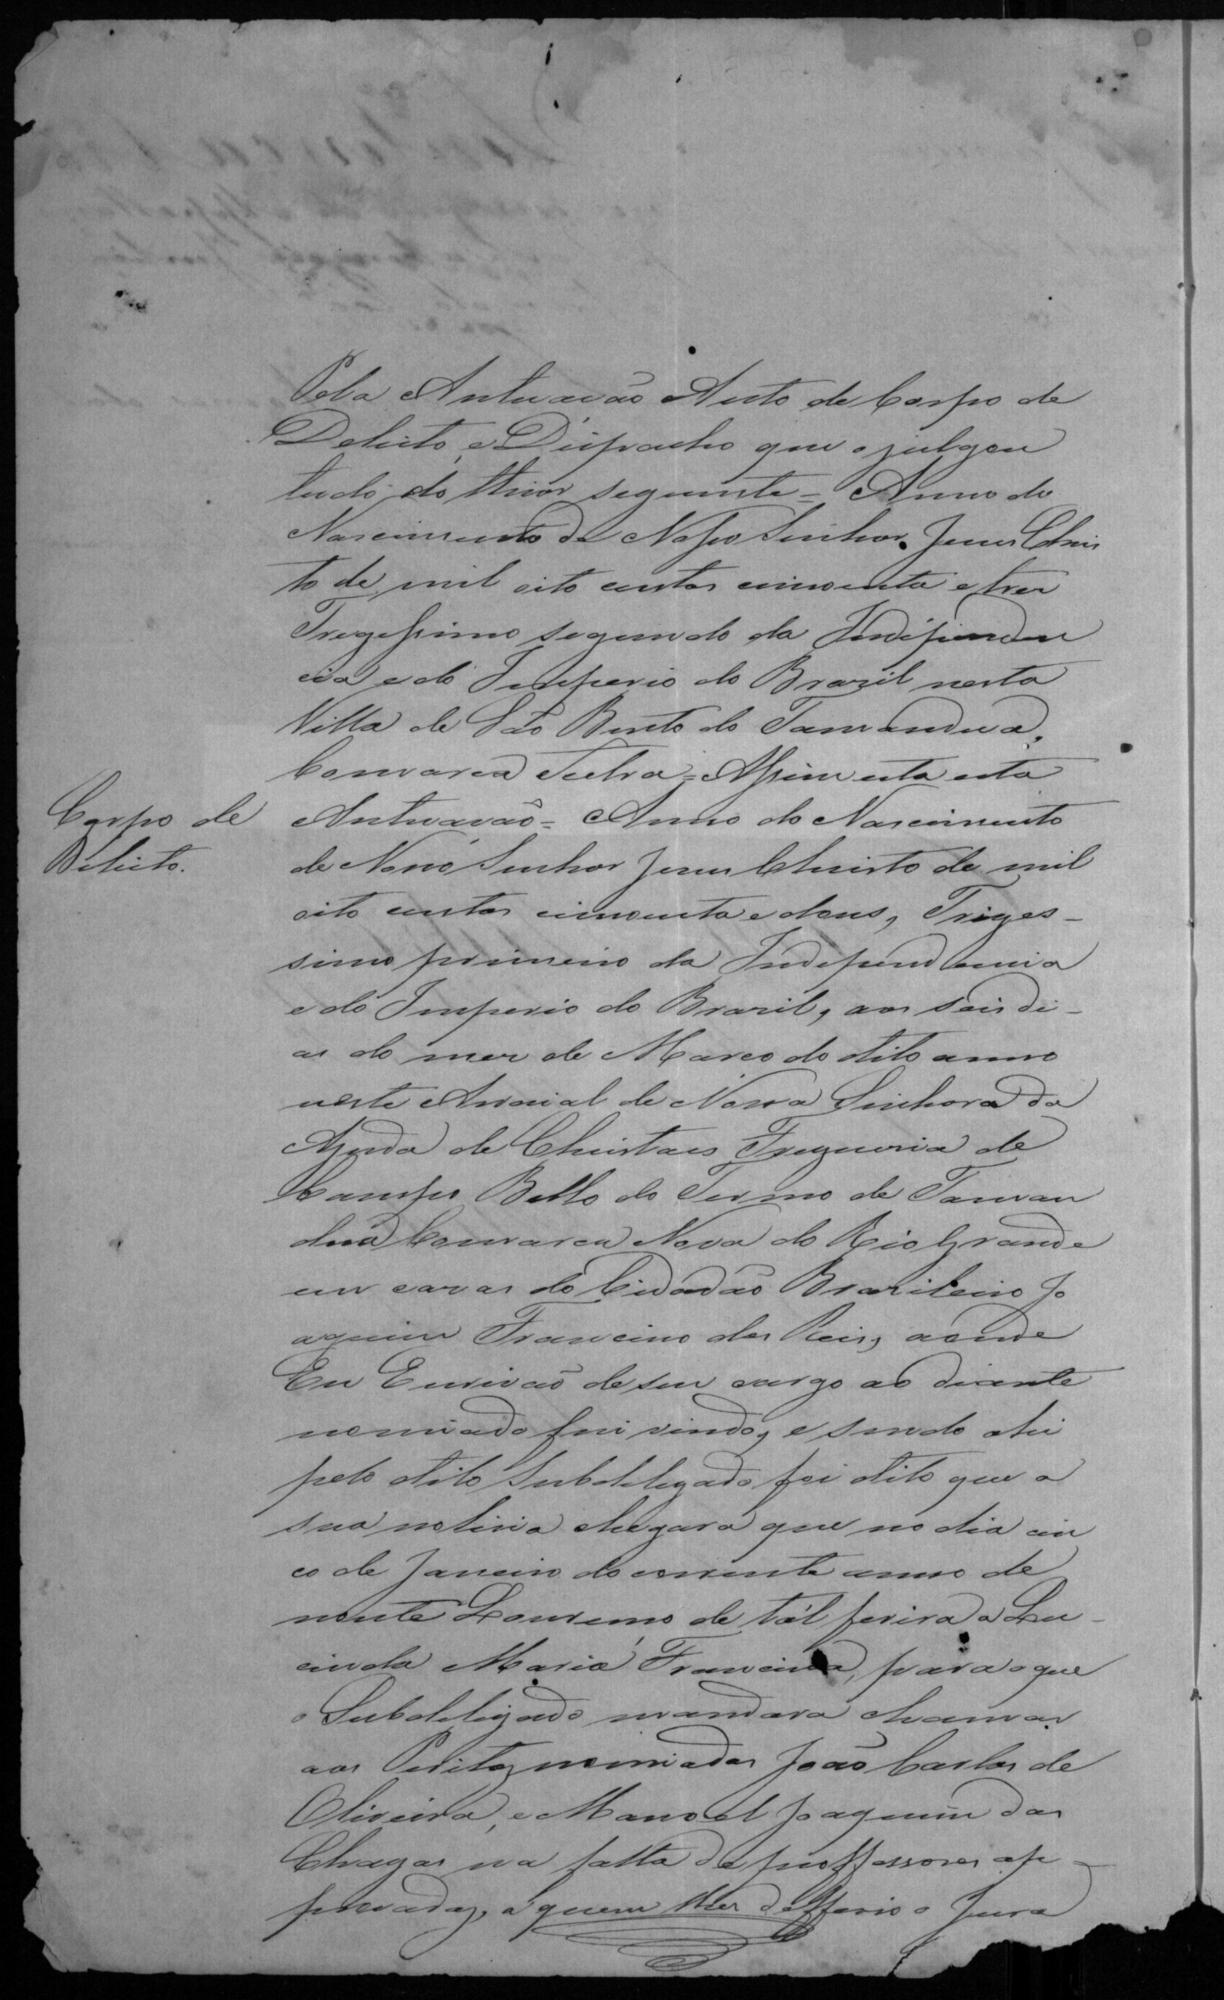 Pela Autuacão Auto de Corpo de
Delicto, e Dispacho que o julgou
tudo do theor seguinte = Anno do
Nascimento de Nosso Senhor Jesus Chris
to de mil oito centos cincoenta e tres
Tregessimo segundo da Indipenden
cia e do Imperio do Brazil nesta
Villa de São Bento do Tamandua,
Comarca = Assim esta esta
Corpo de
Delicto.
Autuacão = Anno do Nascimento
de Nosso Senhor Jesus Christo de mil
oito centos cincoenta e dous, Triges-
simo primeiro da Independencia
e do Imperio do Brazil, aos seis di-
as do mez de Marco do dito anno
neste Arraial de Nossa Sinhora da
Ajuda de Christaes Freguesia de
Campo Bello do Termo de Taman
duá Comarca Nova do Rio Grande
em casas do Cidadão Brazileiro Jo
aquim Francino dos Reis, aonde
Eu Escrivão de seu cargo ao diante
nomiado fui vindo, e sendo ahi
pelo dito Subdelegado foi dito que a
sua noticia chegara que no dia cin
co de Janeiro do corrente anno de
noute Lourenço de tál ferira a Lu-
cinda Maria Francisca, para o que
o Subdeligado mandara chamar
aos Peritos nomiados João Carlos de
Oliveira, e Manoel Joaquim das
Chagas na falta de proffessores ap-
provados, a quem lhes defferio o Jura